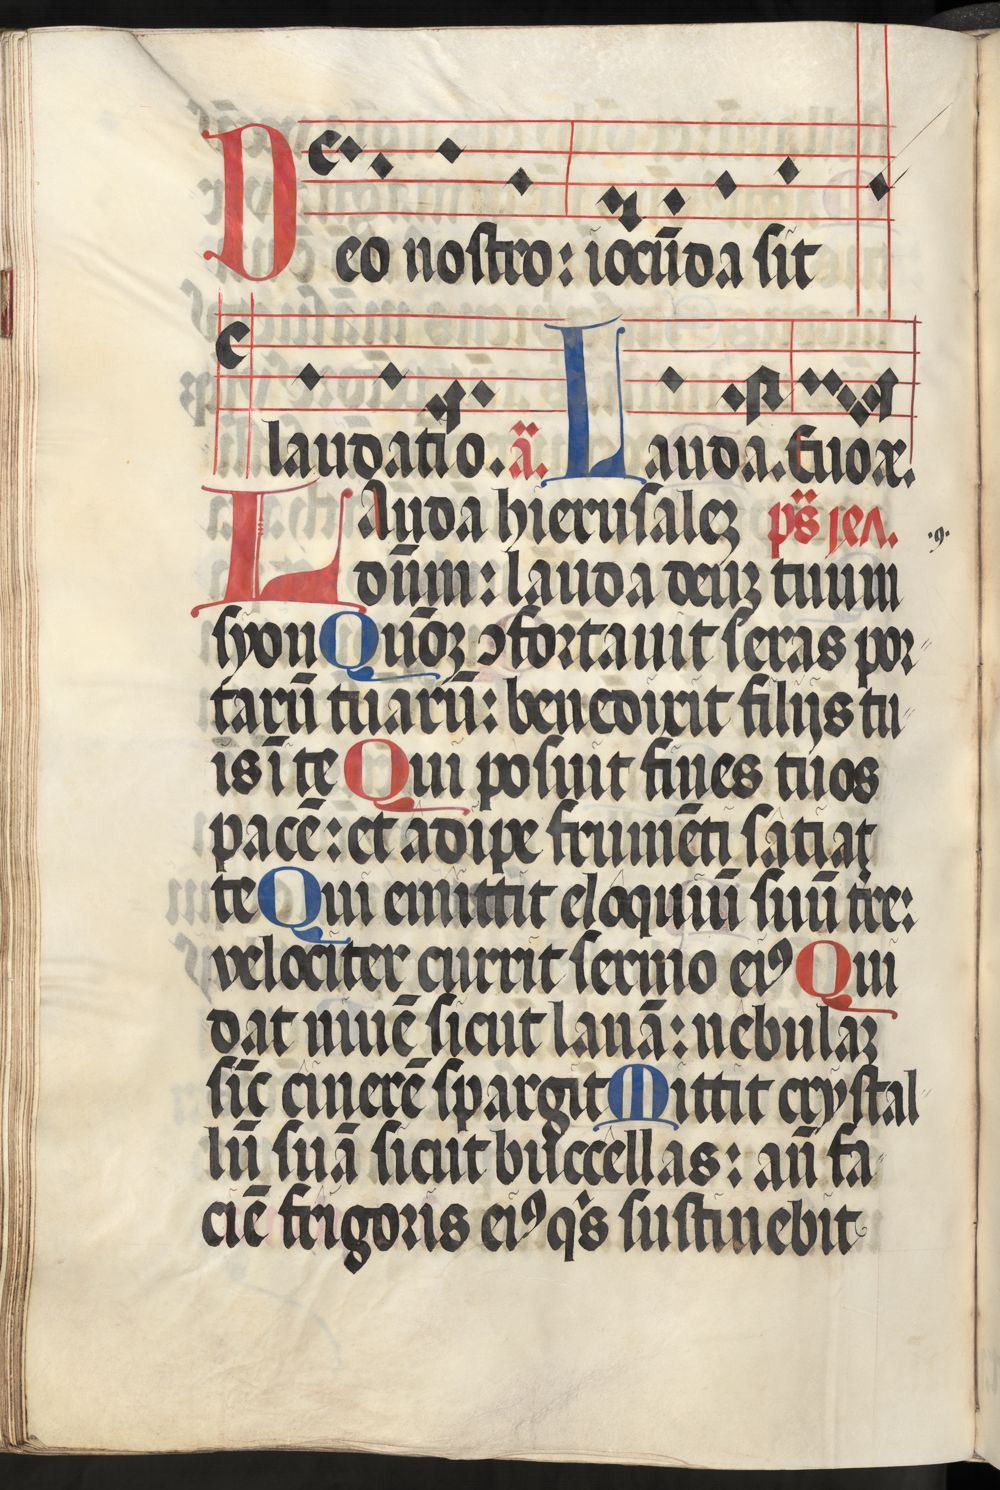 Deo nostro: iocūda sit
laudatio. ā. Lauda. Euoæ.
LAuda hierusaleꝫ p̄s jeꝛ.
·9·
dūm: lauda deuꝫ tuum
syon Quōꝫ ɔfortauit seras por-
tarū tuarū: benedixit filijs tu-
is ī te Qui posuit fines tuos
pacē: et adipe frumēti satiat
te Qui emittit eloquiū suū tr̄e:
velociter currit sermo eiꝰ Qui
dat niuē sicut lanā: nebulaꝫ
sīc cinerē spargit Mittit crystal-
lū suā sicut buccellas: an̄ fa-
ciē frigoris eiꝰ qͥs sustinebit